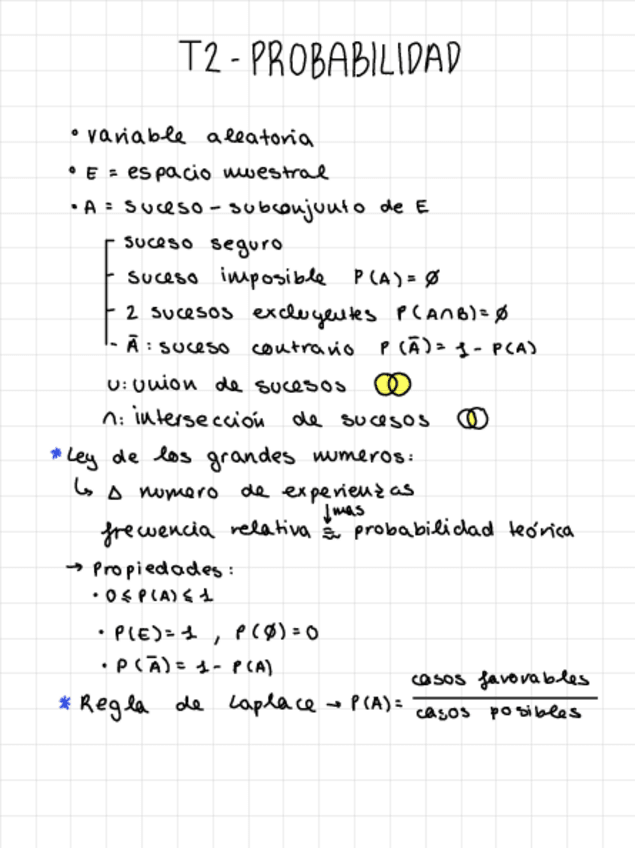 T2 - PROBABILIDAD
• variable aleatoria
• E = espacio muestral
• A = suceso - subconjunto de E
- suceso seguro
- suceso imposible P(A) = Ø
- 2 sucesos excluyentes P(A∩B) = Ø
- Ā : suceso contrario P(Ā) = 1 - P(A)
∪: union de sucesos
∩: intersección de sucesos
* Ley de los grandes numeros:
↳ Δ numero de experienzas
↓mas
frecuencia relativa ≈ probabilidad teórica
→ Propiedades:
• 0 ≤ P(A) ≤ 1
• P(E) = 1 , P(Ø) = 0
• P(Ā) = 1 - P(A)
casos favorables
* Regla de Laplace → P(A) =
casos posibles